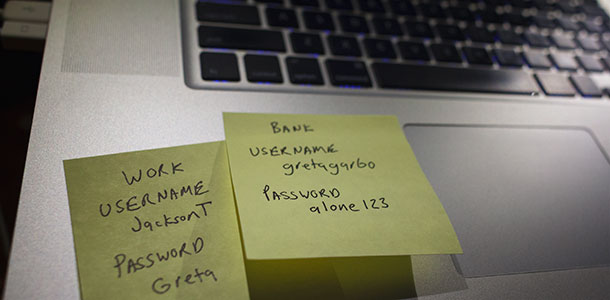 WORK
USERNAME
JacksonT
PASSWORD
Greta
BANK
USERNAME
gretagarbo
PASSWORD
alone123